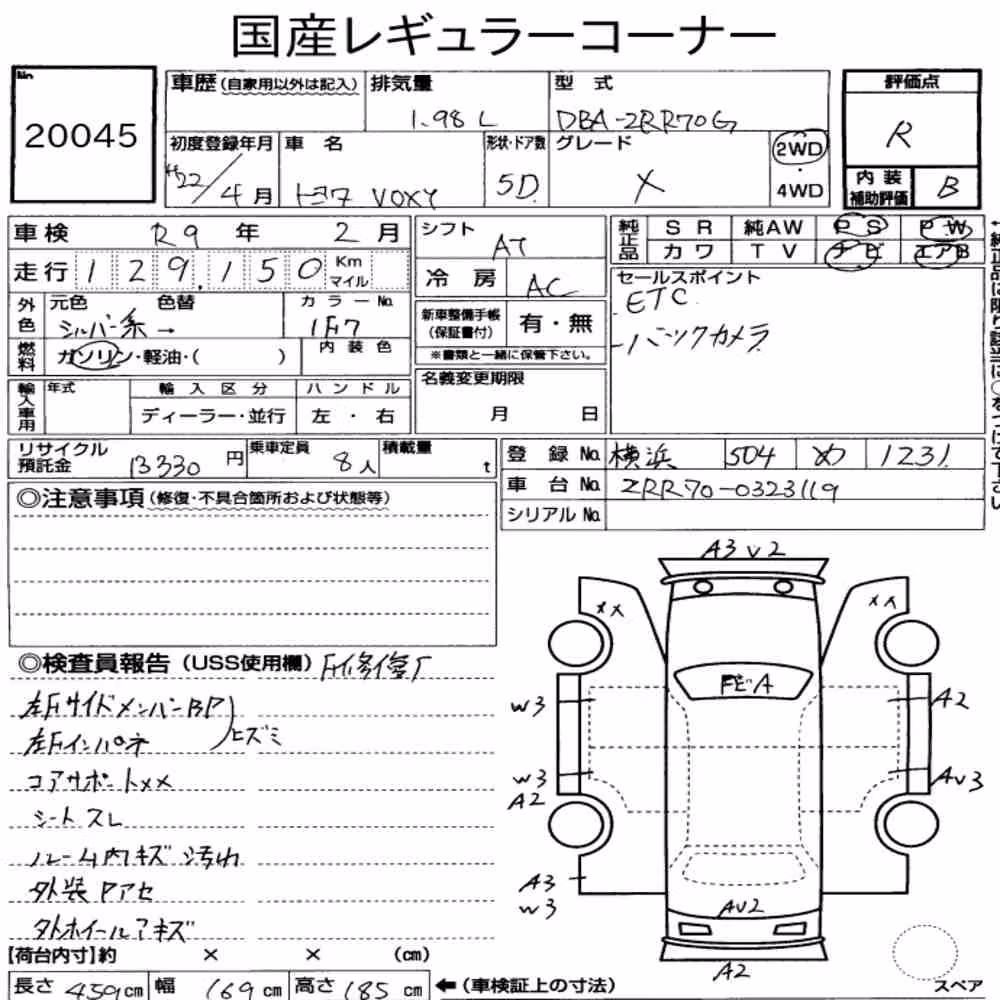 国産レギュラーコーナー
No.
20045
車歴(自家用以外は記入)
排気量
1.98 L
型式
DBA-ZRR70G
評価点
R
初度登録年月
H22/4月
車名
トヨタ VOXY
形状・ドア数
5D
グレード
X
2WD
・
4WD
内装補助評価
B
車検 R9年 2月
走行 129,150 Km マイル
外色
元色
色替
シルバー系→
カラーNo.
1F7
燃料
ガソリン・軽油・( )
内装色
輸入車用
年式
輸入区分
ディーラー・並行
ハンドル
左・右
シフト
AT
冷房
AC
新車整備手帳(保証書付)
有・無
※書類と一緒に保管下さい。
名義変更期限
月 日
純正品
SR
純AW
PS
PW
カワ
TV
ナビ
エアB
セールスポイント
ETC
-バックカメラ
←純正品に限り該当に○をつけて下さい
リサイクル預託金
13330円
乗車定員
8人
積載量
t
登録No.
横浜 504 め 1231
車台No.
ZRR70-0323119
シリアルNo.
◎注意事項(修復・不具合箇所および状態等)
◎検査員報告(USS使用欄)
左Fサイドメンバー BP
左Fインパネ
ヒズミ
コアサポートXX
シートスレ
ルーム内キズ 汚れ
外装Pアセ
外ホイールアキズ
A3 V2
XX
XX
FビA
W3
A2
W3
A2
AV3
A3
W3
AV2
A2
スペア
【荷台内寸】約 × × (cm)
長さ 459cm
幅 169cm
高さ 185cm
←(車検証上の寸法)